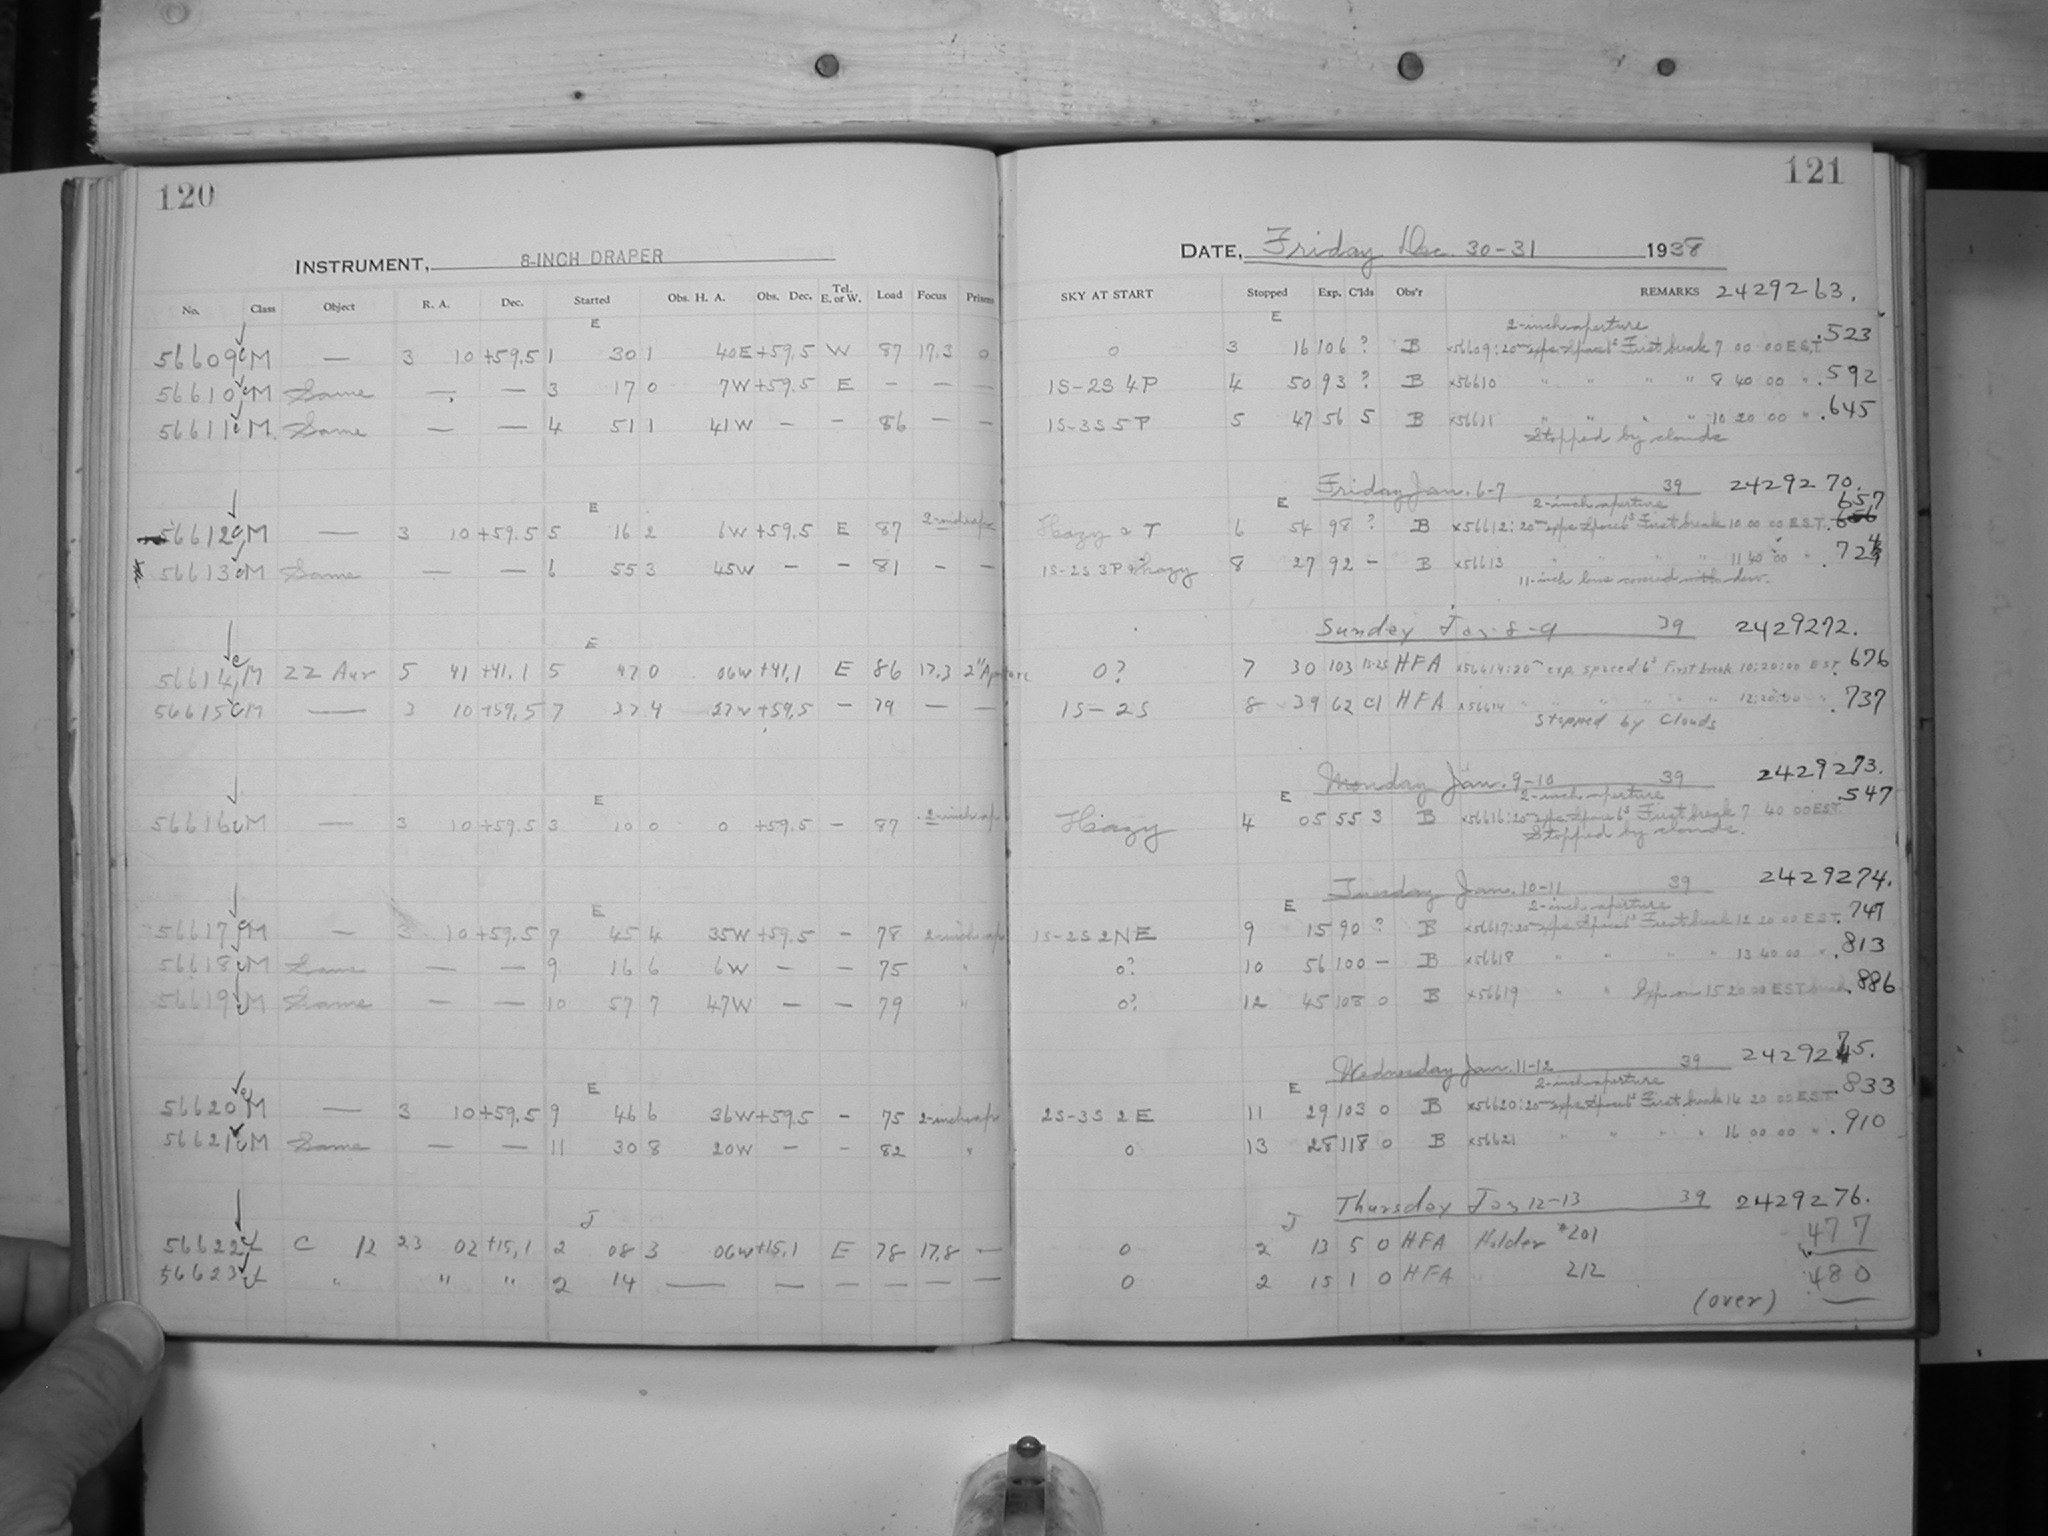 120
INSTRUMENT, 8-INCH DRAPER
No. Class Object R. A. Dec. Started Obs. H. A. Obs. Dec. Tel. E. or W. Load Focus Prisms
E
56609 c M — 3 10 +59.5 1 30 1 40E +59.5 W 87 17.3 0
56610 c M Same — — 3 17 0 7W +59.5 E — — —
56611 c M Same — — 4 51 1 41W — — 86 — —
E
56612 c M — 3 10 +59.5 5 16 2 6W +59.5 E 87 2-inch ape
56613 c M Same — — 6 55 3 45W — — 81 — —
E
56614 c M 22 Aur 5 41 +41.1 5 47 0 06W +41.1 E 86 17.3 2" Aperture
56615 c M — 3 10 +59.5 7 37 4 27W +59.5 — 79 — —
E
56616 c M — 3 10 +59.5 3 10 0 0 +59.5 — 87 2-inch ap
E
56617 c M — 3 10 +59.5 7 45 4 35W +59.5 — 78 2-inch ap
56618 c M Same — — 9 16 6 6W — — 75 "
56619 c M Same — — 10 57 7 47W — — 79 "
E
56620 c M — 3 10 +59.5 9 46 6 36W +59.5 — 75 2-inch ape
56621 c M Same — — 11 30 8 20W — — 82 "
J
56622 c L C 12 23 02 +15.1 2 08 3 06W +15.1 E 78 17.8 —
56623 c L " " " 2 14 — — — — — —
121
DATE, Friday Dec. 30-31 1938
SKY AT START Stopped Exp. C'lds Obs'r REMARKS 2429263.
E 2-inch aperture
0 3 16 106 ? B x56609: 20m exps. spaced 6s First break 7 00 00 E.S.T. .523
1S-2S 4P 4 50 93 ? B x56610 " " " " 8 40 00 " .592
1S-3S 5P 5 47 56 5 B x56611 " " " " 10 20 00 " .645
Stopped by clouds
Friday Jan. 6-7 39 2429270.
E 2-inch aperture 657
Hazy & T 6 54 98 ? B x56612: 20m exps. spaced 6s First break 10 00 00 E.S.T. .656
1S-2S 3P & hazy 8 27 92 — B x56613 " " " " 11 40 00 " .724
11-inch lens covered with dew.
Sunday Jan 8-9 39 2429272.
0? 7 30 103 HFA x56614: 20m exp. spaced 6s First break 10:20:00 EST. .676
1S-2S 8 39 62 Cl HFA x56614 " " " " " 12:20:00 " .737
Stopped by Clouds
Monday Jan. 9-10 39 2429273.
E 2-inch aperture .547
Hazy 4 05 55 3 B x56616: 20m exps. spaced 6s First break 7 40 00 E.S.T.
Stopped by clouds.
Tuesday Jan. 10-11 39 2429274.
E 2-inch aperture
1S-2S 2NE 9 15 90 ? B x56617: 20m exps. spaced 6s First break 12 20 00 E.S.T. .747
0? 10 56 100 — B x56618 " " " " 13 40 00 " .813
0? 12 45 108 0 B x56619 " " 15 20 00 EST break .886
Wednesday Jan. 11-12 39 2429275.
E 2-inch aperture
2S-3S 2E 11 29 103 0 B x56620: 20m exps. spaced 6s First break 14 20 00 E.S.T. .833
0 13 28 118 0 B x56621 " " " " 16 00 00 " .910
Thursday Jan 12-13 39 2429276.
J
0 2 13 5 0 HFA Holder #201 .477
0 2 15 1 0 HFA 212 .480
(over)